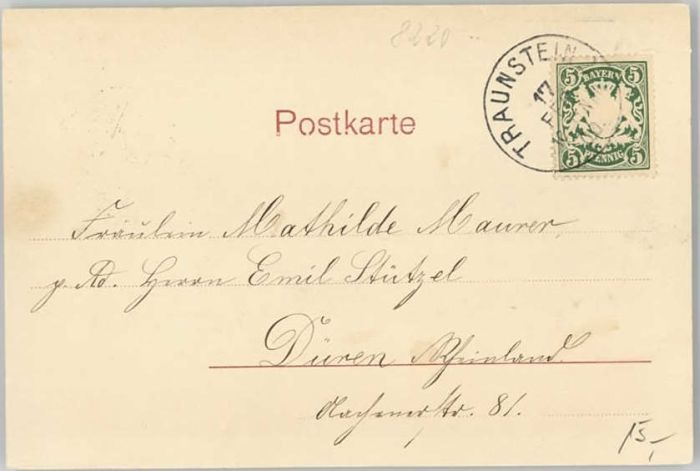 8220
TRAUNSTEIN
17
5 BAYERN 5
5 PFENNIG 5
Postkarte
Fräulein Mathilde Maurer,
p. Ad. Herrn Emil Stützel
Düren Rheinland.
Aachenerstr. 81.
15,-